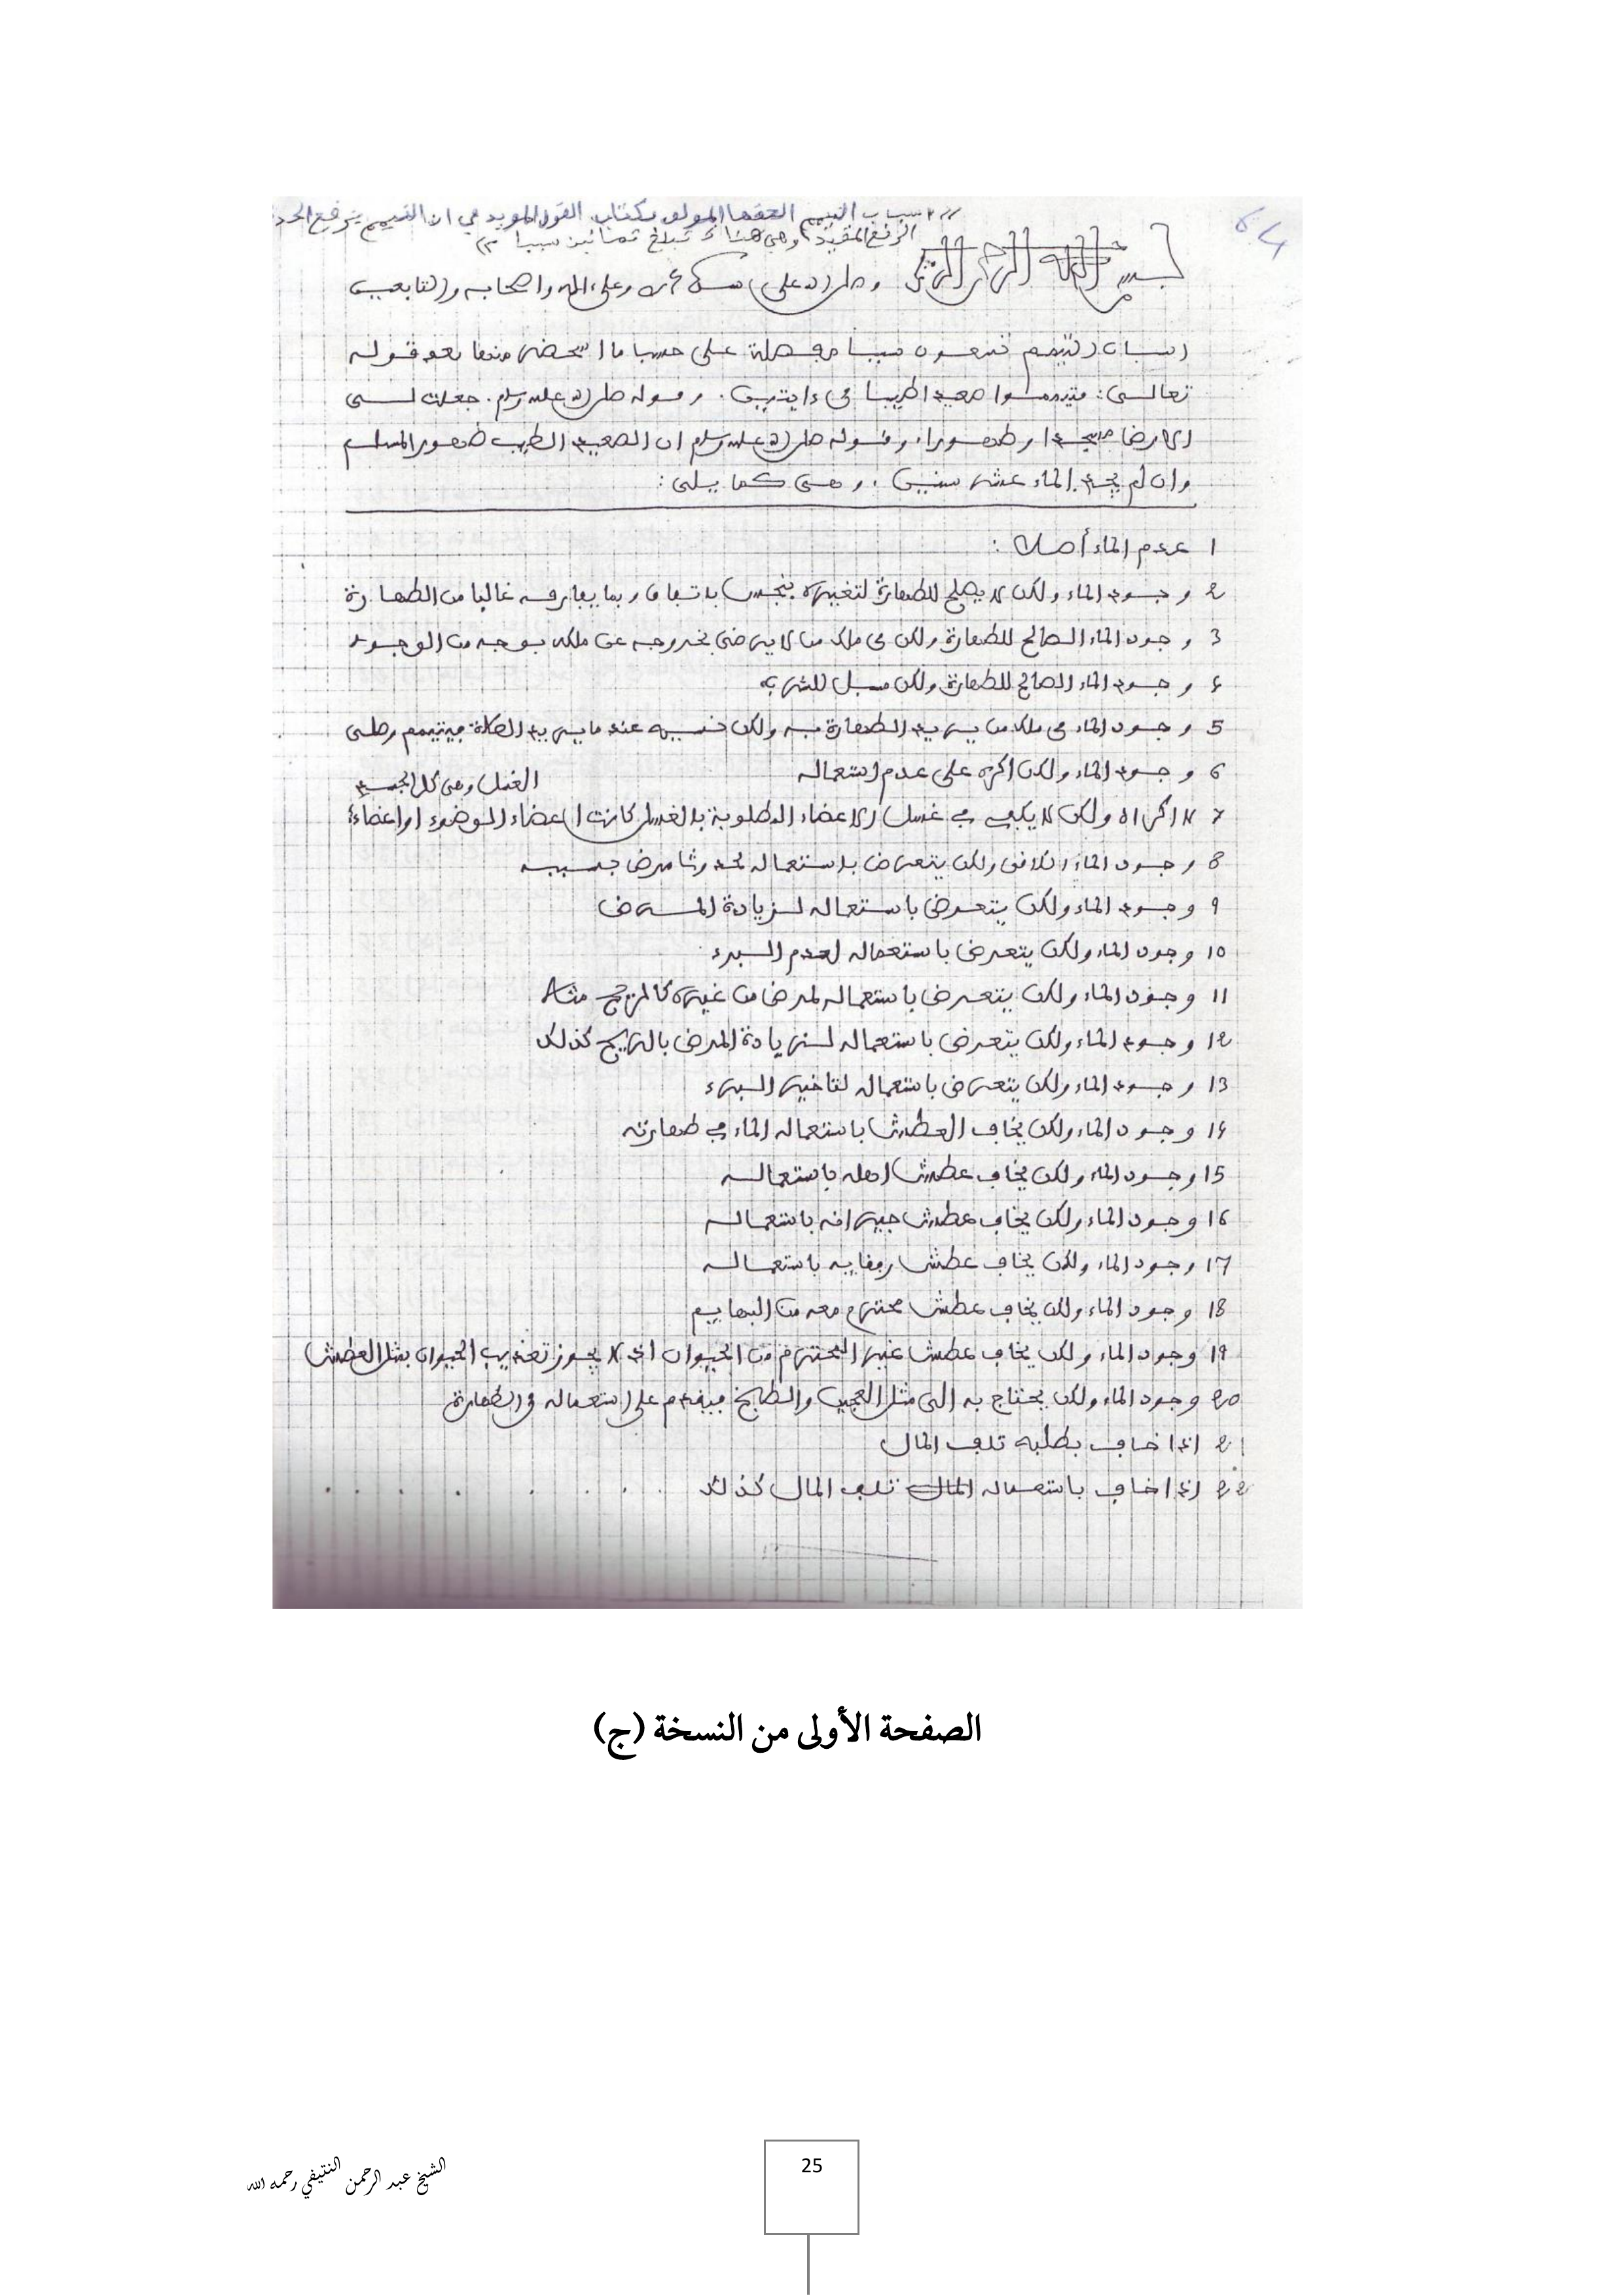 اسباب التيمم الحقها المولف بكتاب القول المويد في ان التيمم يرفع الحدث
الرفع المقيد وهي هناك تبلغ ثمانين سببا
64
بسم الله الرحمن الرحيم وصلى الله على سيدنا محمد وعلى اله واصحابه والتابعين
اسباب التيمم تسعون سببا مفصلة على حسب ما استحضر منها بعد قوله
تعالى: فتيمموا صعيدا طيبا في ءايتين. وقوله صلى الله عليه وسلم. جعلت لي
الارض مسجدا وطهورا، وقوله صلى الله عليه وسلم ان الصعيد الطيب طهور المسلم
وان لم يجد الماء عشر سنين، وهي كما يلي:
1 عدم الماء أصلا:
2 وجود الماء ولكن لا يصلح للطهارة لتغيره بنجس باتفاق وبما يفارقه غالبا من الطهارة
3 وجود الماء الصالح للطهارة ولكن في ملك من لا يرضى بخروجه عن ملكه بوجه من الوجوه
4 وجود الماء الصالح للطهارة ولكن مسبل للشرب
5 وجود الماء في ملك من يريد الطهارة به ولكن نسيه عند ما يريد الصلاة فيتيمم وصلى
6 وجود الماء ولكن اكره على عدم استعماله
الغسل وهي كل الجسد
7 لا اكراه ولكن لا يكفي في غسل الاعضاء المطلوبة بالغسل كانت اعضاء الوضوء او اعضاء
8 وجود الماء الكافي ولكن يتعرض باستعماله لحدوث مرض بسببه
9 وجود الماء ولكن يتعرض باستعماله لزيادة المرض
10 وجود الماء ولكن يتعرض باستعماله لعدم البرء
11 وجود الماء ولكن يتعرض باستعماله لمرض من غيره كالريح مثلا
12 وجود الماء ولكن يتعرض باستعماله لزيادة المرض بالريح كذلك
13 وجود الماء ولكن يتعرض باستعماله لتاخير البرء
14 وجود الماء ولكن يخاف العطش باستعماله الماء في طهارته
15 وجود الماء ولكن يخاف عطش اهله باستعماله
16 وجود الماء ولكن يخاف عطش جيرانه باستعماله
17 وجود الماء ولكن يخاف عطش رفقايه باستعماله
18 وجود الماء ولكن يخاف عطش محترم معه من البهايم
19 وجود الماء ولكن يخاف عطش غير المحترم من الحيوان اذ لا يجوز تعذيب الحيوان بمثل العطش
20 وجود الماء ولكن يحتاج به الى مثل العجين والطبخ فيقدم على استعماله في الطهارة
21 اذا خاف بطلبه تلف المال
22 اذا خاف باستعماله تلف المال كذلك
الصفحة الأولى من النسخة (ج)
25
الشيخ عبد الرحمن النتيفي رحمه الله